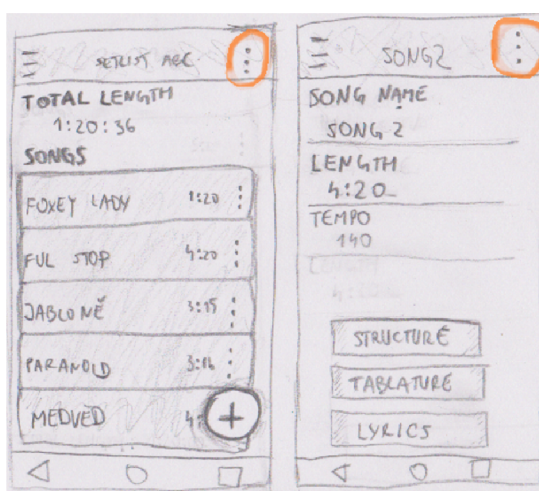 SETLIST ABC
TOTAL LENGTH
1:20:36
SONGS
FOXEY LADY 1:20
FUL STOP 4:20
JABLONĚ 3:15
PARANOID 3:16
MEDVĚD 4:
+
SONG2
SONG NAME
SONG 2
LENGTH
4:20
TEMPO
140
LENGTH
STRUCTURE
TABLATURE
LYRICS